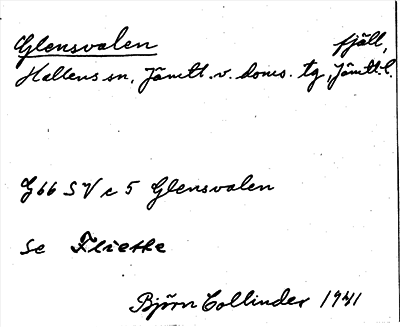 Glensvalen fjäll,
Hallens sn, Jämtl. v. doms. tg, Jämtl. l.
G 66 SV c 5 Glensvalen
Se Flietke
Björn Collinder 1941